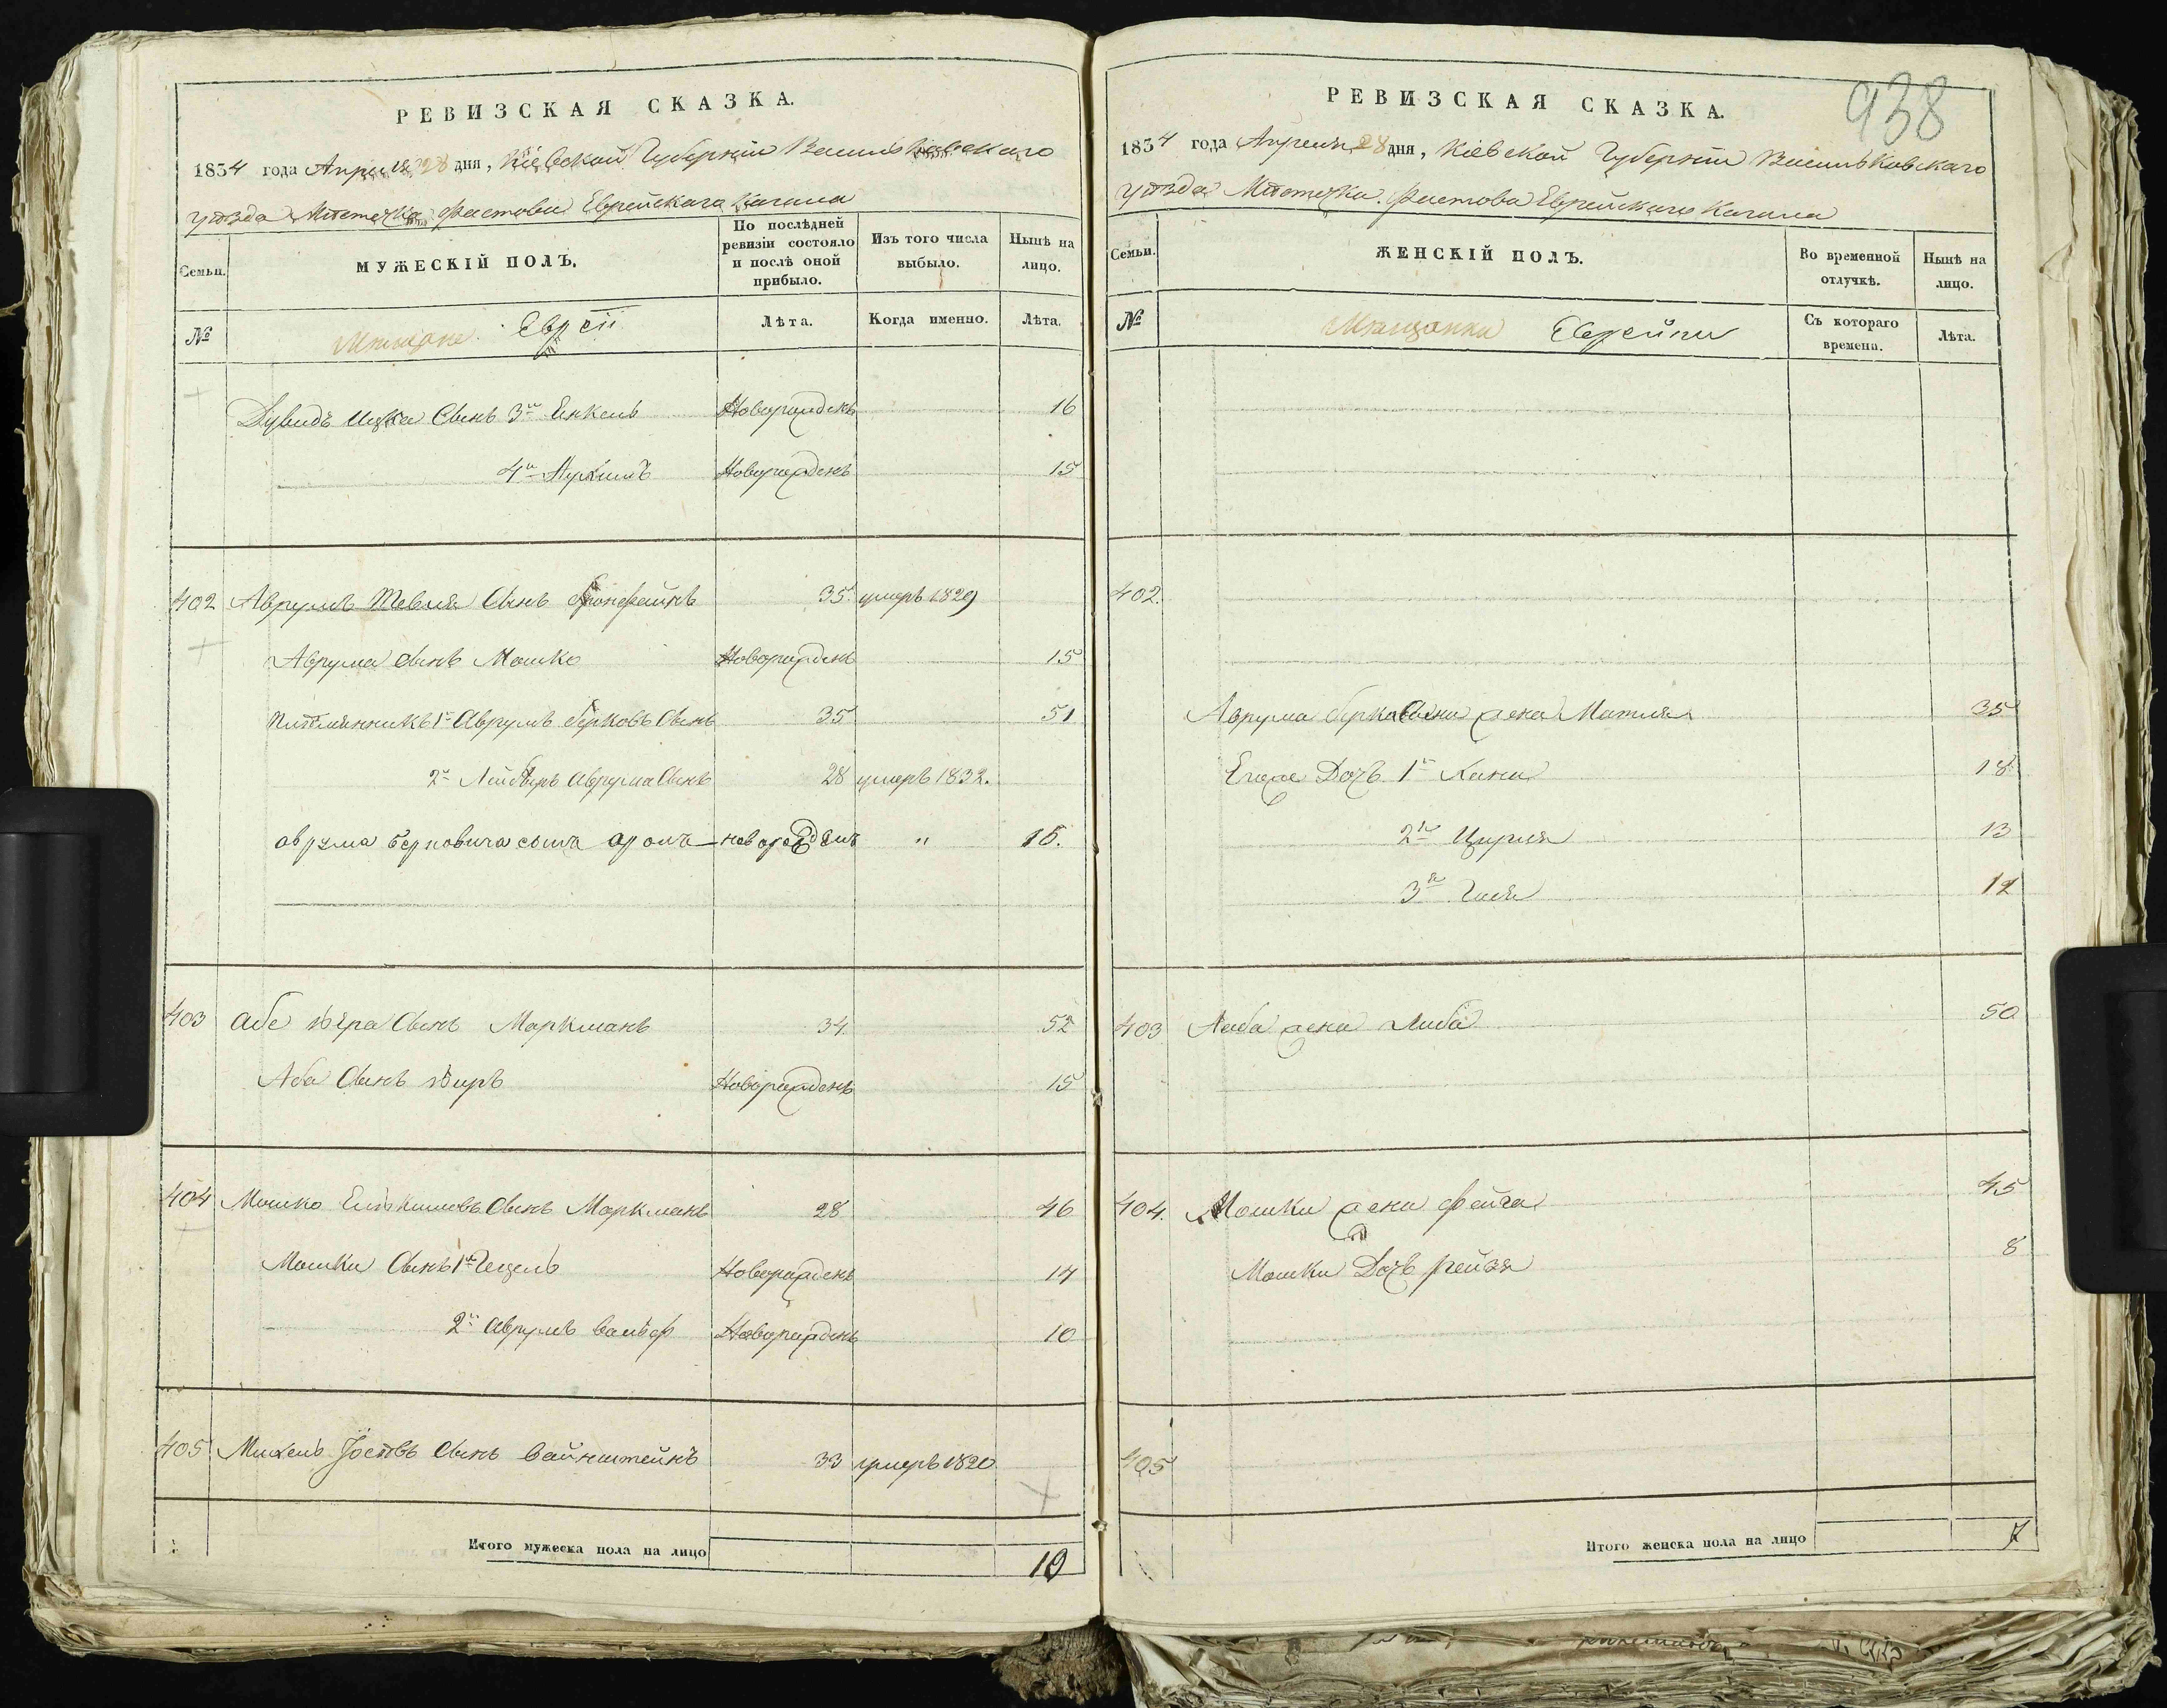 РЕВИЗСКАЯ СКАЗКА.
1834 года Апреля 28 дня, Кіевской Губерніи Васильковскаго
уѣзда Мѣстечка Фастова Еврейскаго Кагала
Семьи.
МУЖЕСКІЙ ПОЛЪ.
По послѣдней ревизіи состояло и послѣ оной прибыло.
Изъ того числа выбыло.
Нынѣ на лицо.
№
Мещане Евреи
Лѣта.
Когда именно.
Лѣта.
Дувидъ Ицка Сынъ 3й Енкель Новорожденъ 16
4й Новорожденъ 15
402 Аврумъ Тевеля Сынъ Бронфайнъ 35 умеръ 1829
Аврума Сынъ Мошко Новорожденъ 15
Племянникъ 1й Аврумъ Берковъ Сынъ 35 51
2й Аврума Сынъ 28 умеръ 1832.
аврума Берковича сына аронъ новорожденъ " 15.
403 Абе Сынъ Маркманъ 34 52
Аба Сынъ Новорожденъ 15
404 Мошко Сынъ Маркманъ 28 46
Мошки Сынъ 1й Гецель Новорожденъ 14
2й Аврумъ Вольф Новорожденъ 10
405 Михель Сынъ Вайнштейнъ 33 умеръ 1820
Итого мужеска пола на лицо 10
938
РЕВИЗСКАЯ СКАЗКА.
1834 года Апреля 28 дня, Кіевской Губерніи Васильковскаго
уѣзда Мѣстечка Фастова Еврейскаго Кагала
Семьи.
ЖЕНСКІЙ ПОЛЪ.
Во временной отлучкѣ.
Нынѣ на лицо.
№
Мещанки Еврейки
Съ котораго времени.
Лѣта.
402.
Аврума жена Матля 35
Егоже Дочь 1я Хана 18
2я Цирля 13
3я Гися 12
403 Аба жена Либа 50
404. Мошки жена Фейга 45
Мошки Дочь Рейзя 8
405
Итого женска пола на лицо 7